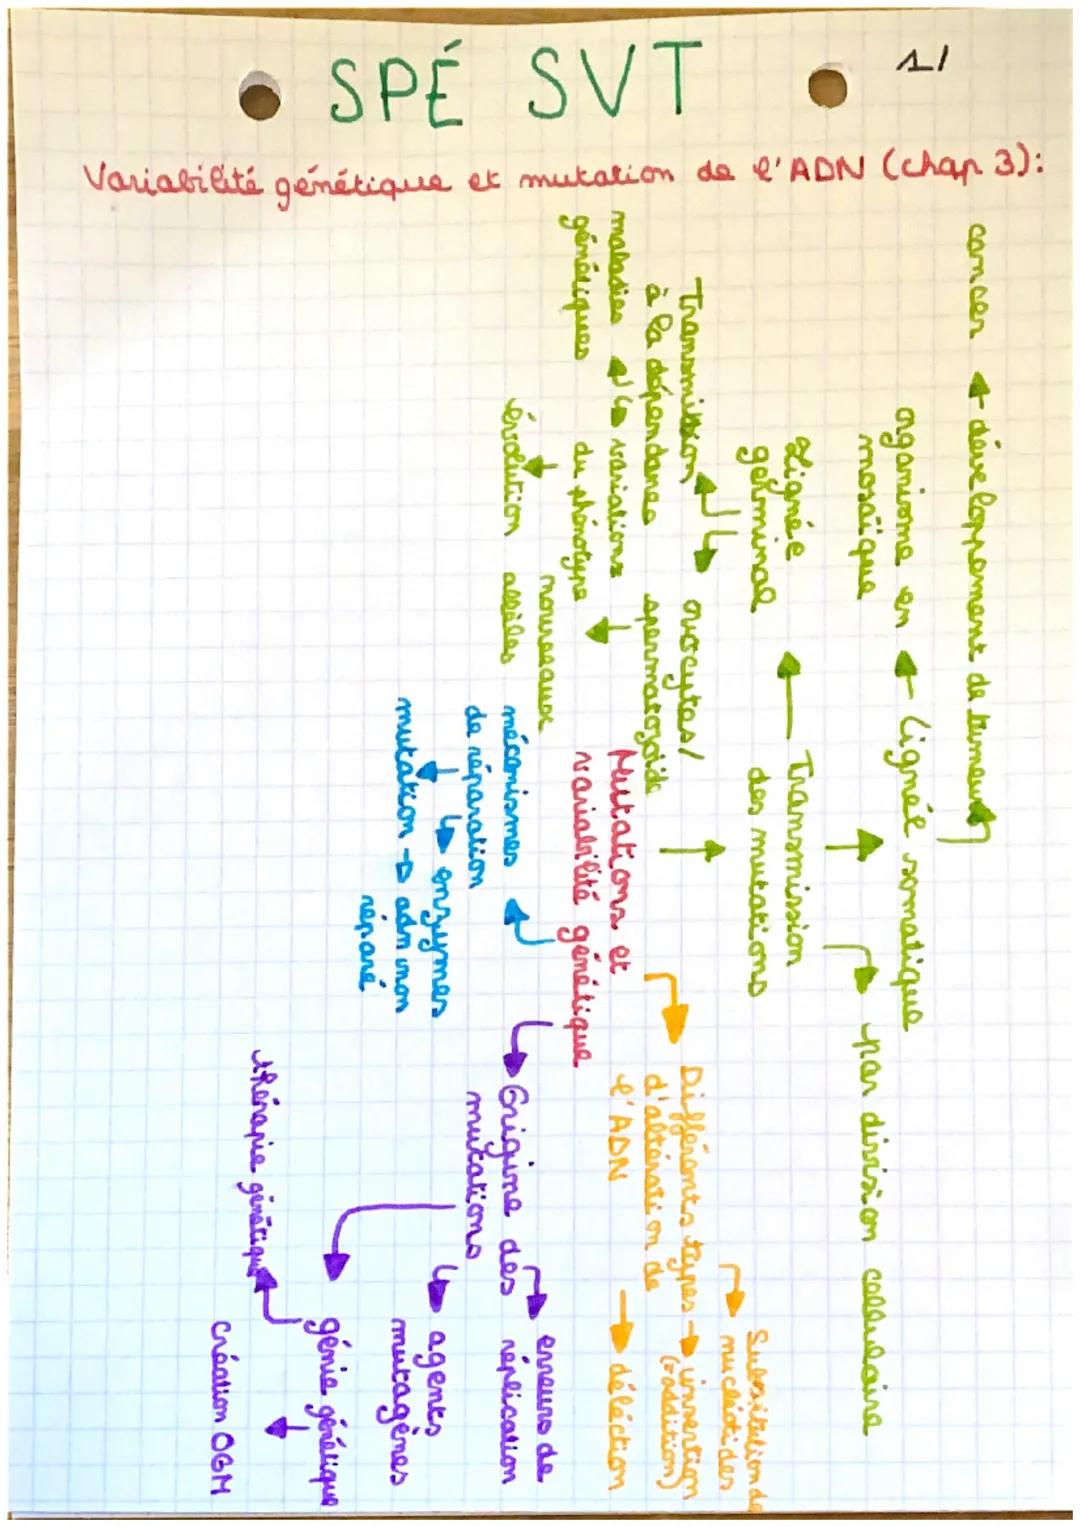 SPÉ SVT
1/
Variabilité génétique et mutation de l'ADN (chap 3):
cancer ← développement de tumeur
organisme en ← Lignée somatique
mosaïque
par division cellulaire
Lignée
germinal
← Transmission
des mutations
Transmission
à la dépendance
ovocytes/
spermatozoïde
maladies
génétiques
variations
du phénotype
évolution
nouveaux
allèles
Mutations et
variabilité génétique
Différents types
d'altération de
l'ADN
Substitution de
nucléotides
→ insertion
(addition)
→ délection
mécanismes
de réparation
↳ enzymes
mutation → adn non
réparé
Origine des
mutations
erreurs de
réplication
agents
mutagènes
génie génétique
thérapie génétique
création OGM